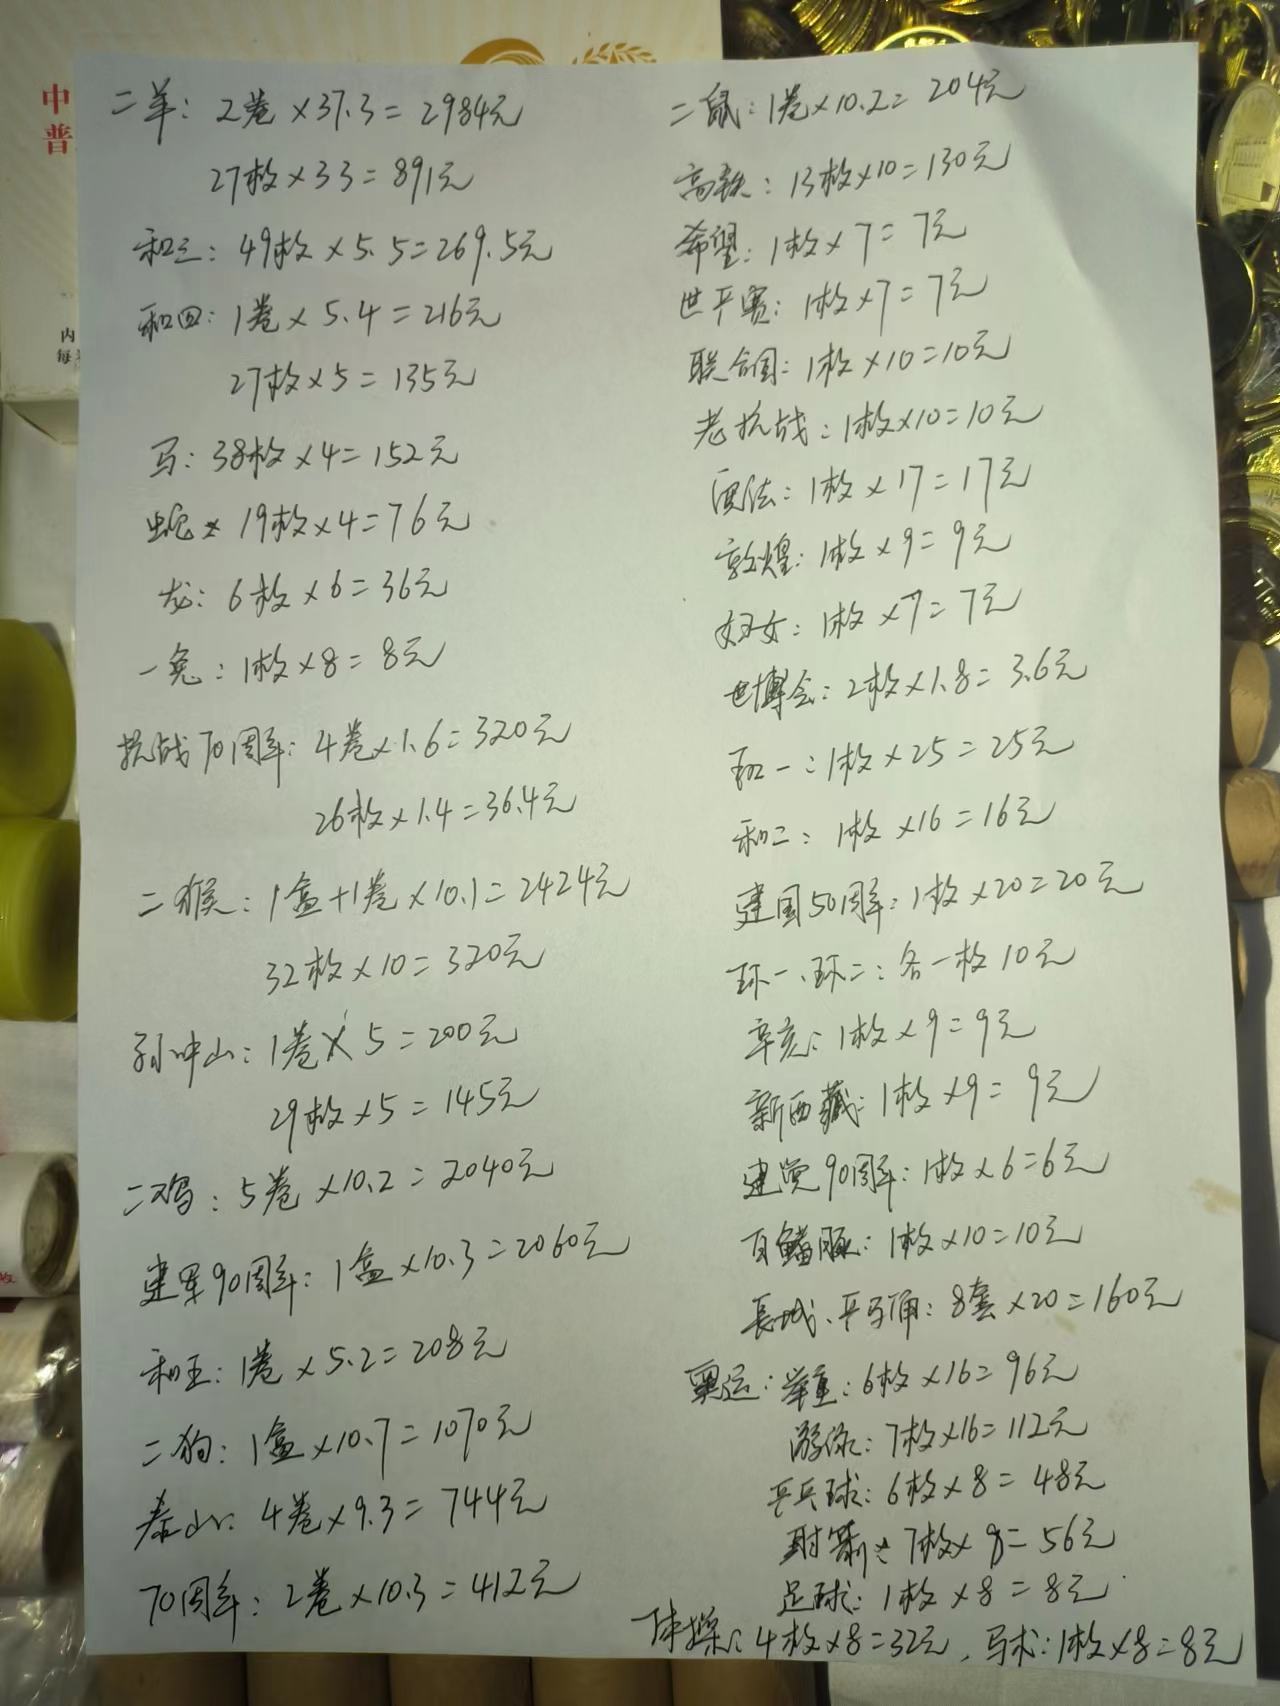 中
普
内
每
二羊：2卷×37.3=2984元
27枚×33=891元
和三：49枚×5.5=269.5元
和四：1卷×5.4=216元
27枚×5=135元
马：38枚×4=152元
蛇：19枚×4=76元
龙：6枚×6=36元
一兔：1枚×8=8元
抗战70周年：4卷×1.6=320元
26枚×1.4=36.4元
二猴：1盒+1卷×10.1=2424元
32枚×10=320元
孙中山：1卷×5=200元
29枚×5=145元
二鸡：5卷×10.2=2040元
建军90周年：1盒×10.3=2060元
和五：1卷×5.2=208元
二狗：1盒×10.7=1070元
泰山：4卷×9.3=744元
70周年：2卷×10.3=412元
二鼠：1卷×10.2=204元
高铁：13枚×10=130元
希望：1枚×7=7元
世乒赛：1枚×7=7元
联合国：1枚×10=10元
老抗战：1枚×10=10元
宪法：1枚×17=17元
敦煌：1枚×9=9元
妇女：1枚×7=7元
世博会：2枚×1.8=3.6元
和一：1枚×25=25元
和二：1枚×16=16元
建国50周年：1枚×20=20元
环一、环二：各一枚10元
辛亥：1枚×9=9元
新西藏：1枚×9=9元
建党90周年：1枚×6=6元
白鳍豚：1枚×10=10元
長城、兵马俑：8套×20=160元
奥运：举重：6枚×16=96元
游泳：7枚×16=112元
乒乓球：6枚×8=48元
射箭：7枚×8=56元
足球：1枚×8=8元
体操：4枚×8=32元，马术：1枚×8=8元